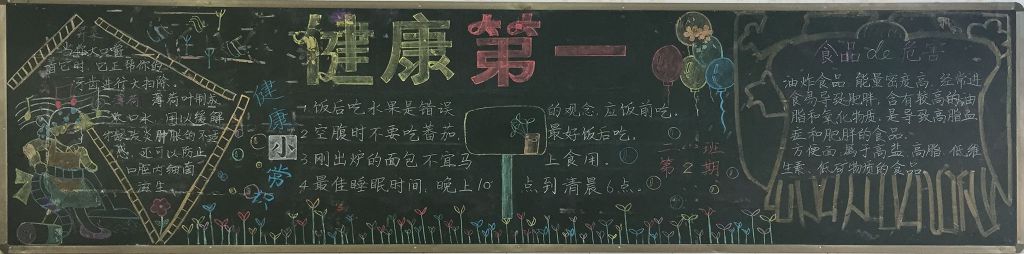 健康第一
当
着它时,它正帮你的
牙齿进行大扫除。
薄荷 薄荷叶制成
口水,用以缓解
炎肿胀的不适
感,还可以防止
口腔内细菌
滋生。
健康小常识
1 饭后吃水果是错误的观念,应饭前吃。
2 空腹时不要吃蕃茄,最好饭后吃。
3 刚出炉的面包不宜马上食用。
4 最佳睡眠时间,晚上10点到清晨6点。
二 班
第2期
食品de危害
油炸食品 能量密度高,经常进
食易导致肥胖,含有较高的油
脂和氧化物质,是导致高脂血
症和肥胖的食品。
方便面 属于高盐、高脂、低维
生素、低矿物质的食品